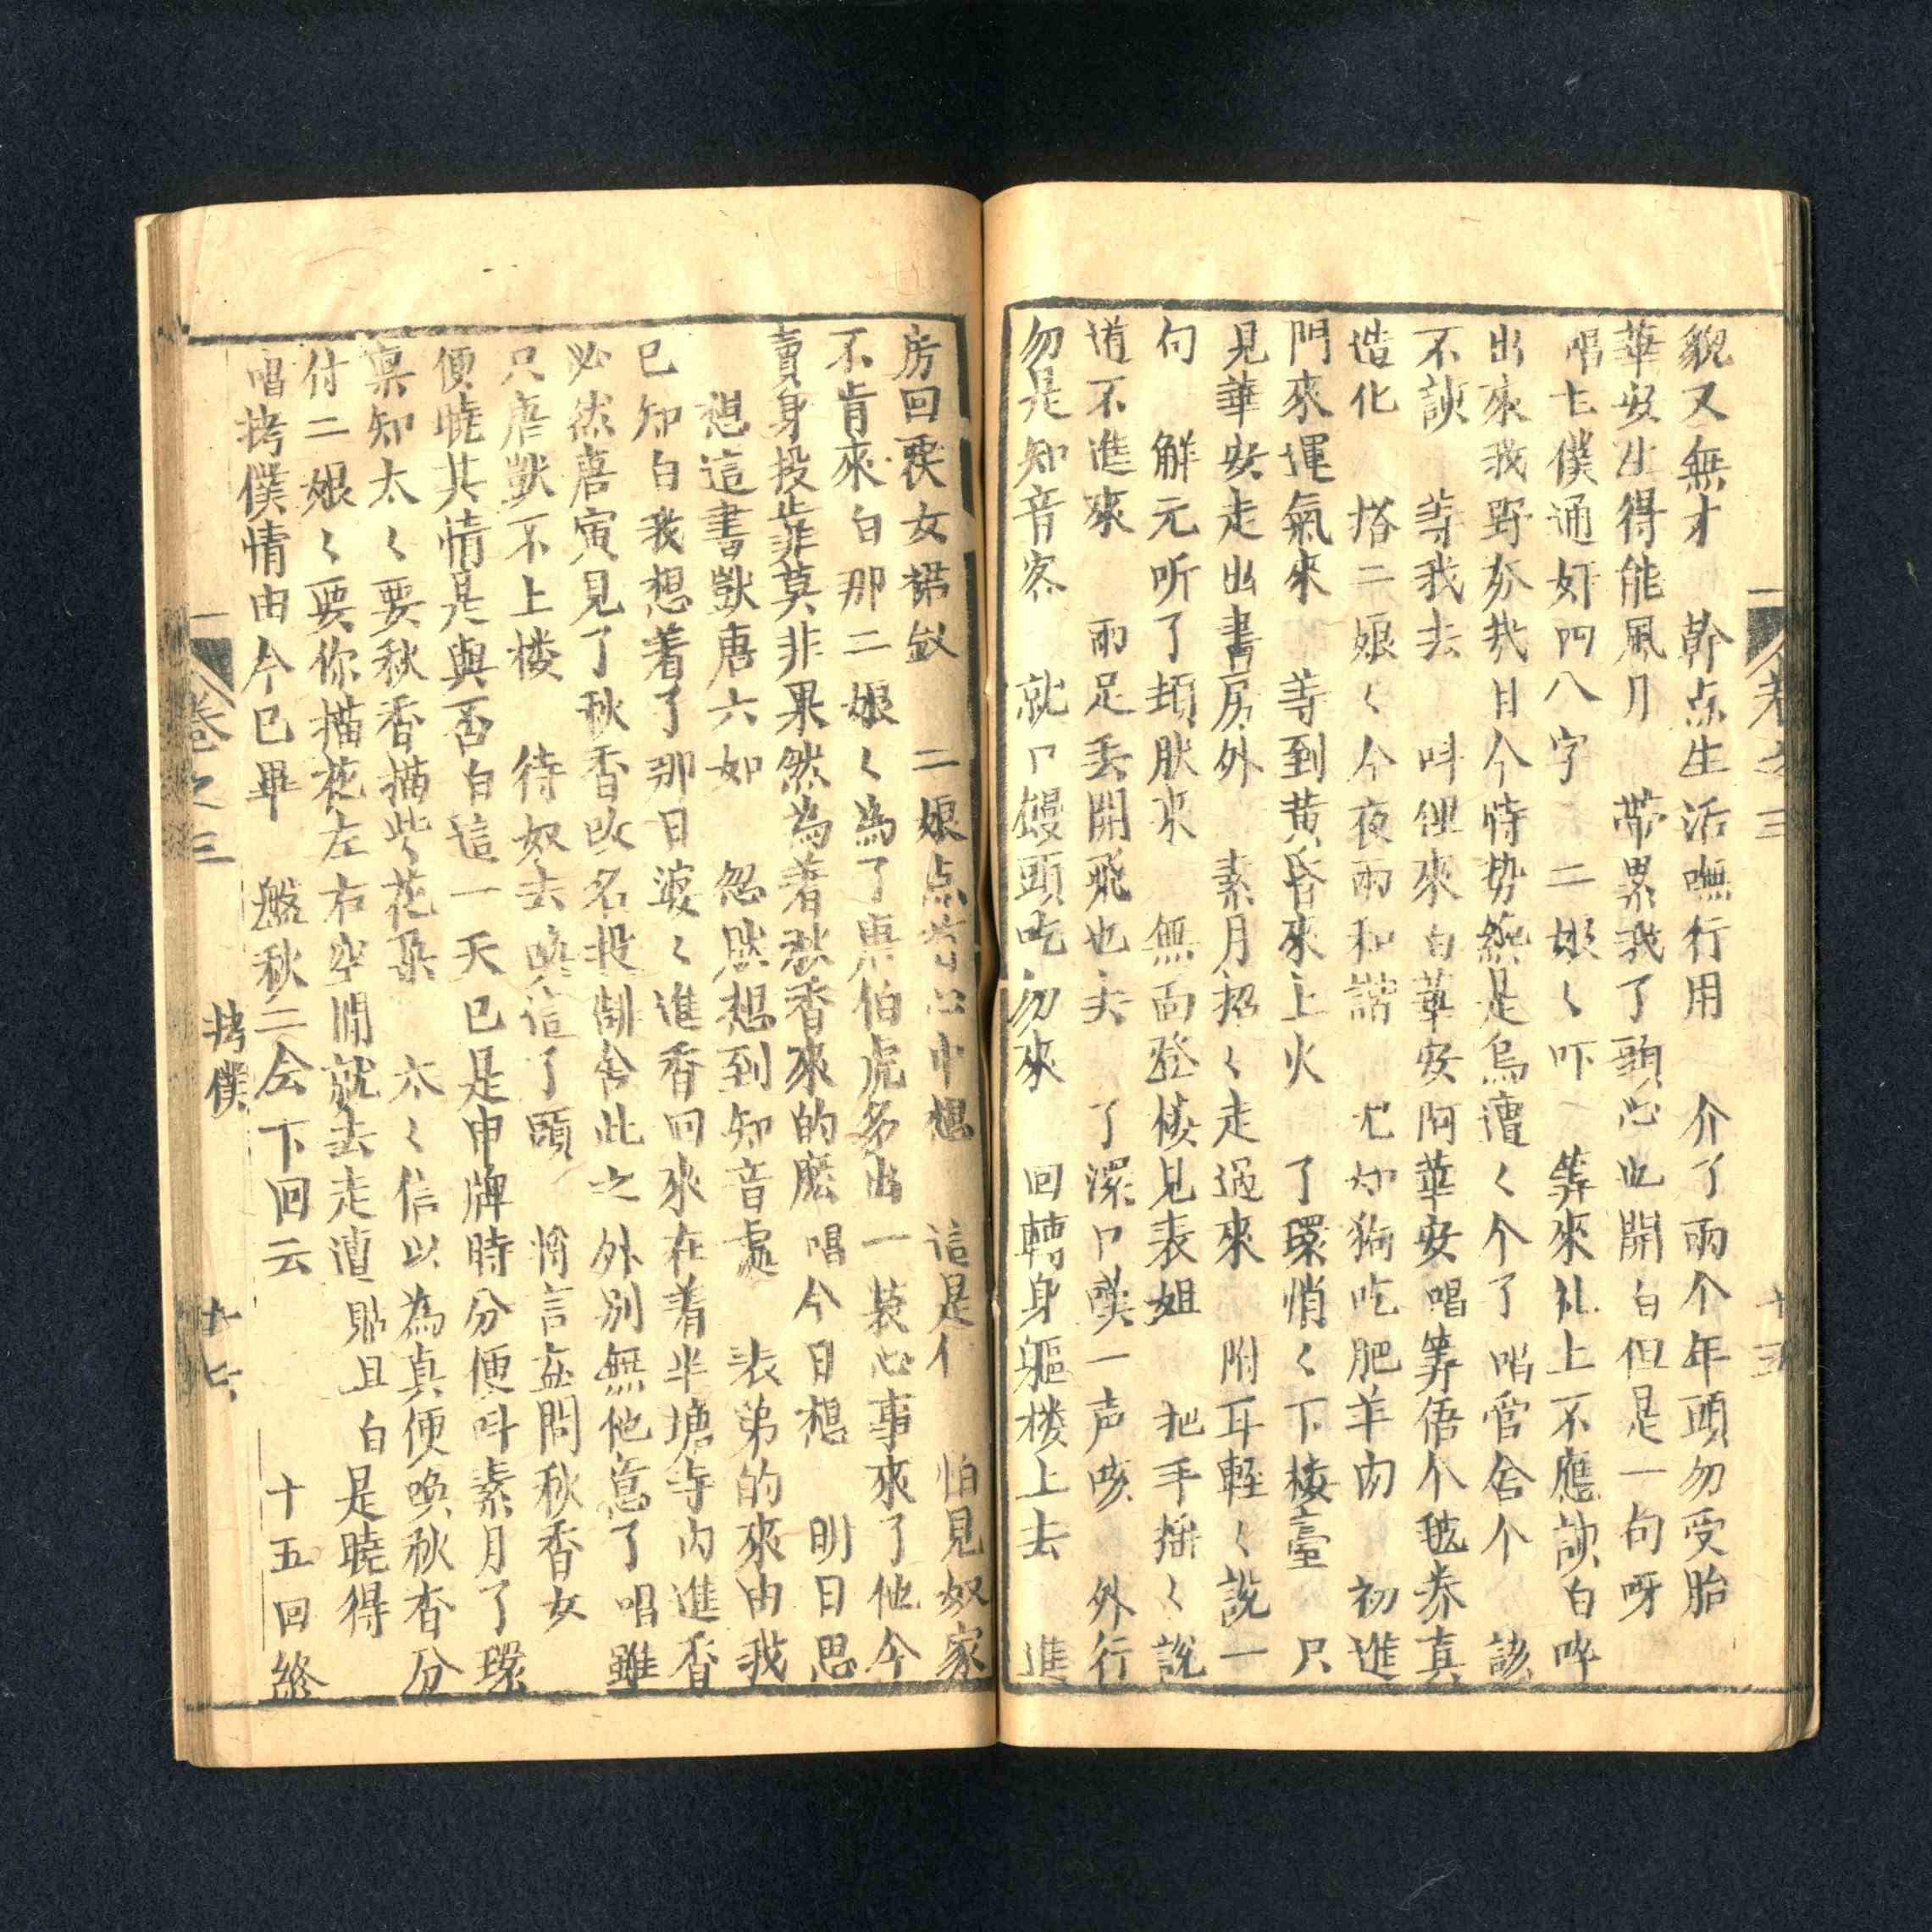 貌又無才 幹点生活嘸行用 介了兩个年頭勿受胎
華安生得能風月 帶累我了頭心也開白但是一句呀
唱七僕通奸四八字 二娘く吓 筭來礼上不應該白哗
出來我野夯我目今恃势緃是烏遭く个了唱官舍个 該
不該 等我去 呌俚來白華安阿華安唱筭俉个毡恭真
造化 搭二娘く今夜雨和諧 尤如狗吃肥羊肉 初進
門來運氣來 等到黄昏來上火 了環悄く下楼臺 只
見華安走出書房外 素月招く走過來 附耳輕く說一
句 解元听了頭肰來 無面登楼見表姐 把手揺く說
道不進來 兩足丢開飛也去 了環口嘆一声咳 外行
勿是知音客 就口饅頭吃勿來 回轉身軀楼上去 進
房回覆女裙釵 二娘点首心中想 這是个 怕見奴家
不肯來白那二娘く為了唐伯虎多出一裝心事來了他今
賣身投靠莫非果然為着秋香來的麽 唱今日想 明日思
想這書獃唐六如 忽肰想到知音處 表弟的來由我
已知白我想着了那日婆く進香回來在着半塘寺内進香
必然唐寅見了秋香改名投制舍此之外别無他意了唱雖
只唐獃不上楼 待奴去喚這了頭 将言盘問秋香女
便曉其情是與否白這一天已是申牌時分便呌素月了環
禀知太く要秋香描些花朶 太く信以為真便喚秋香分
付二娘く要你描花左右空閒就去走遭貼旦白是曉得
唱拷僕情由今已畢 盤秋二会下回云 十五回終
卷之三 拷僕